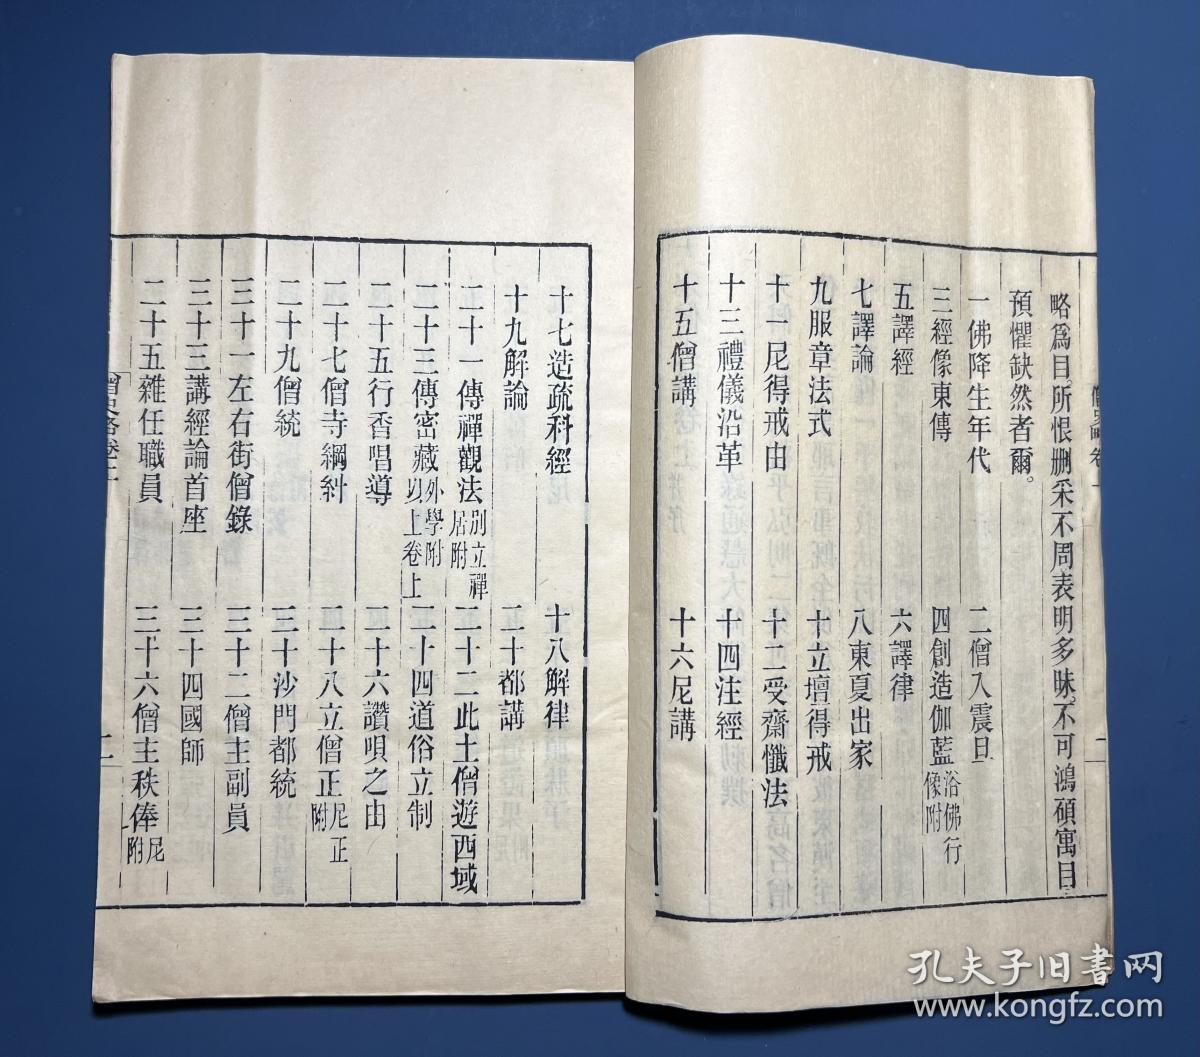 僧史略卷上
二
略爲目。所恨刪采不周表明多昧。不可鴻碩寓目
預懼缺然者爾。
一佛降生年代 二僧入震旦
三經像東傳 四創造伽藍浴佛行像附
五譯經 六譯律
七譯論 八東夏出家
九服章法式 十立壇得戒
十一尼得戒由 十二受齋懺法
十三禮儀沿革 十四注經
十五僧講 十六尼講
十七造疏科經 十八解律
十九解論 二十都講
二十一傳禪觀法別立禪居附 二十二此土僧遊西域
二十三傳密藏外學附以上卷上 二十四道俗立制
二十五行香唱導 二十六讚唄之由
二十七僧寺綱糾 二十八立僧正尼正附
二十九僧統 三十沙門都統
三十一左右街僧錄 三十二僧主副員
三十三講經論首座 三十四國師
三十五雜任職員 三十六僧主秩俸尼附
僧史略卷上
二
孔夫子旧书网
www.kongfz.com